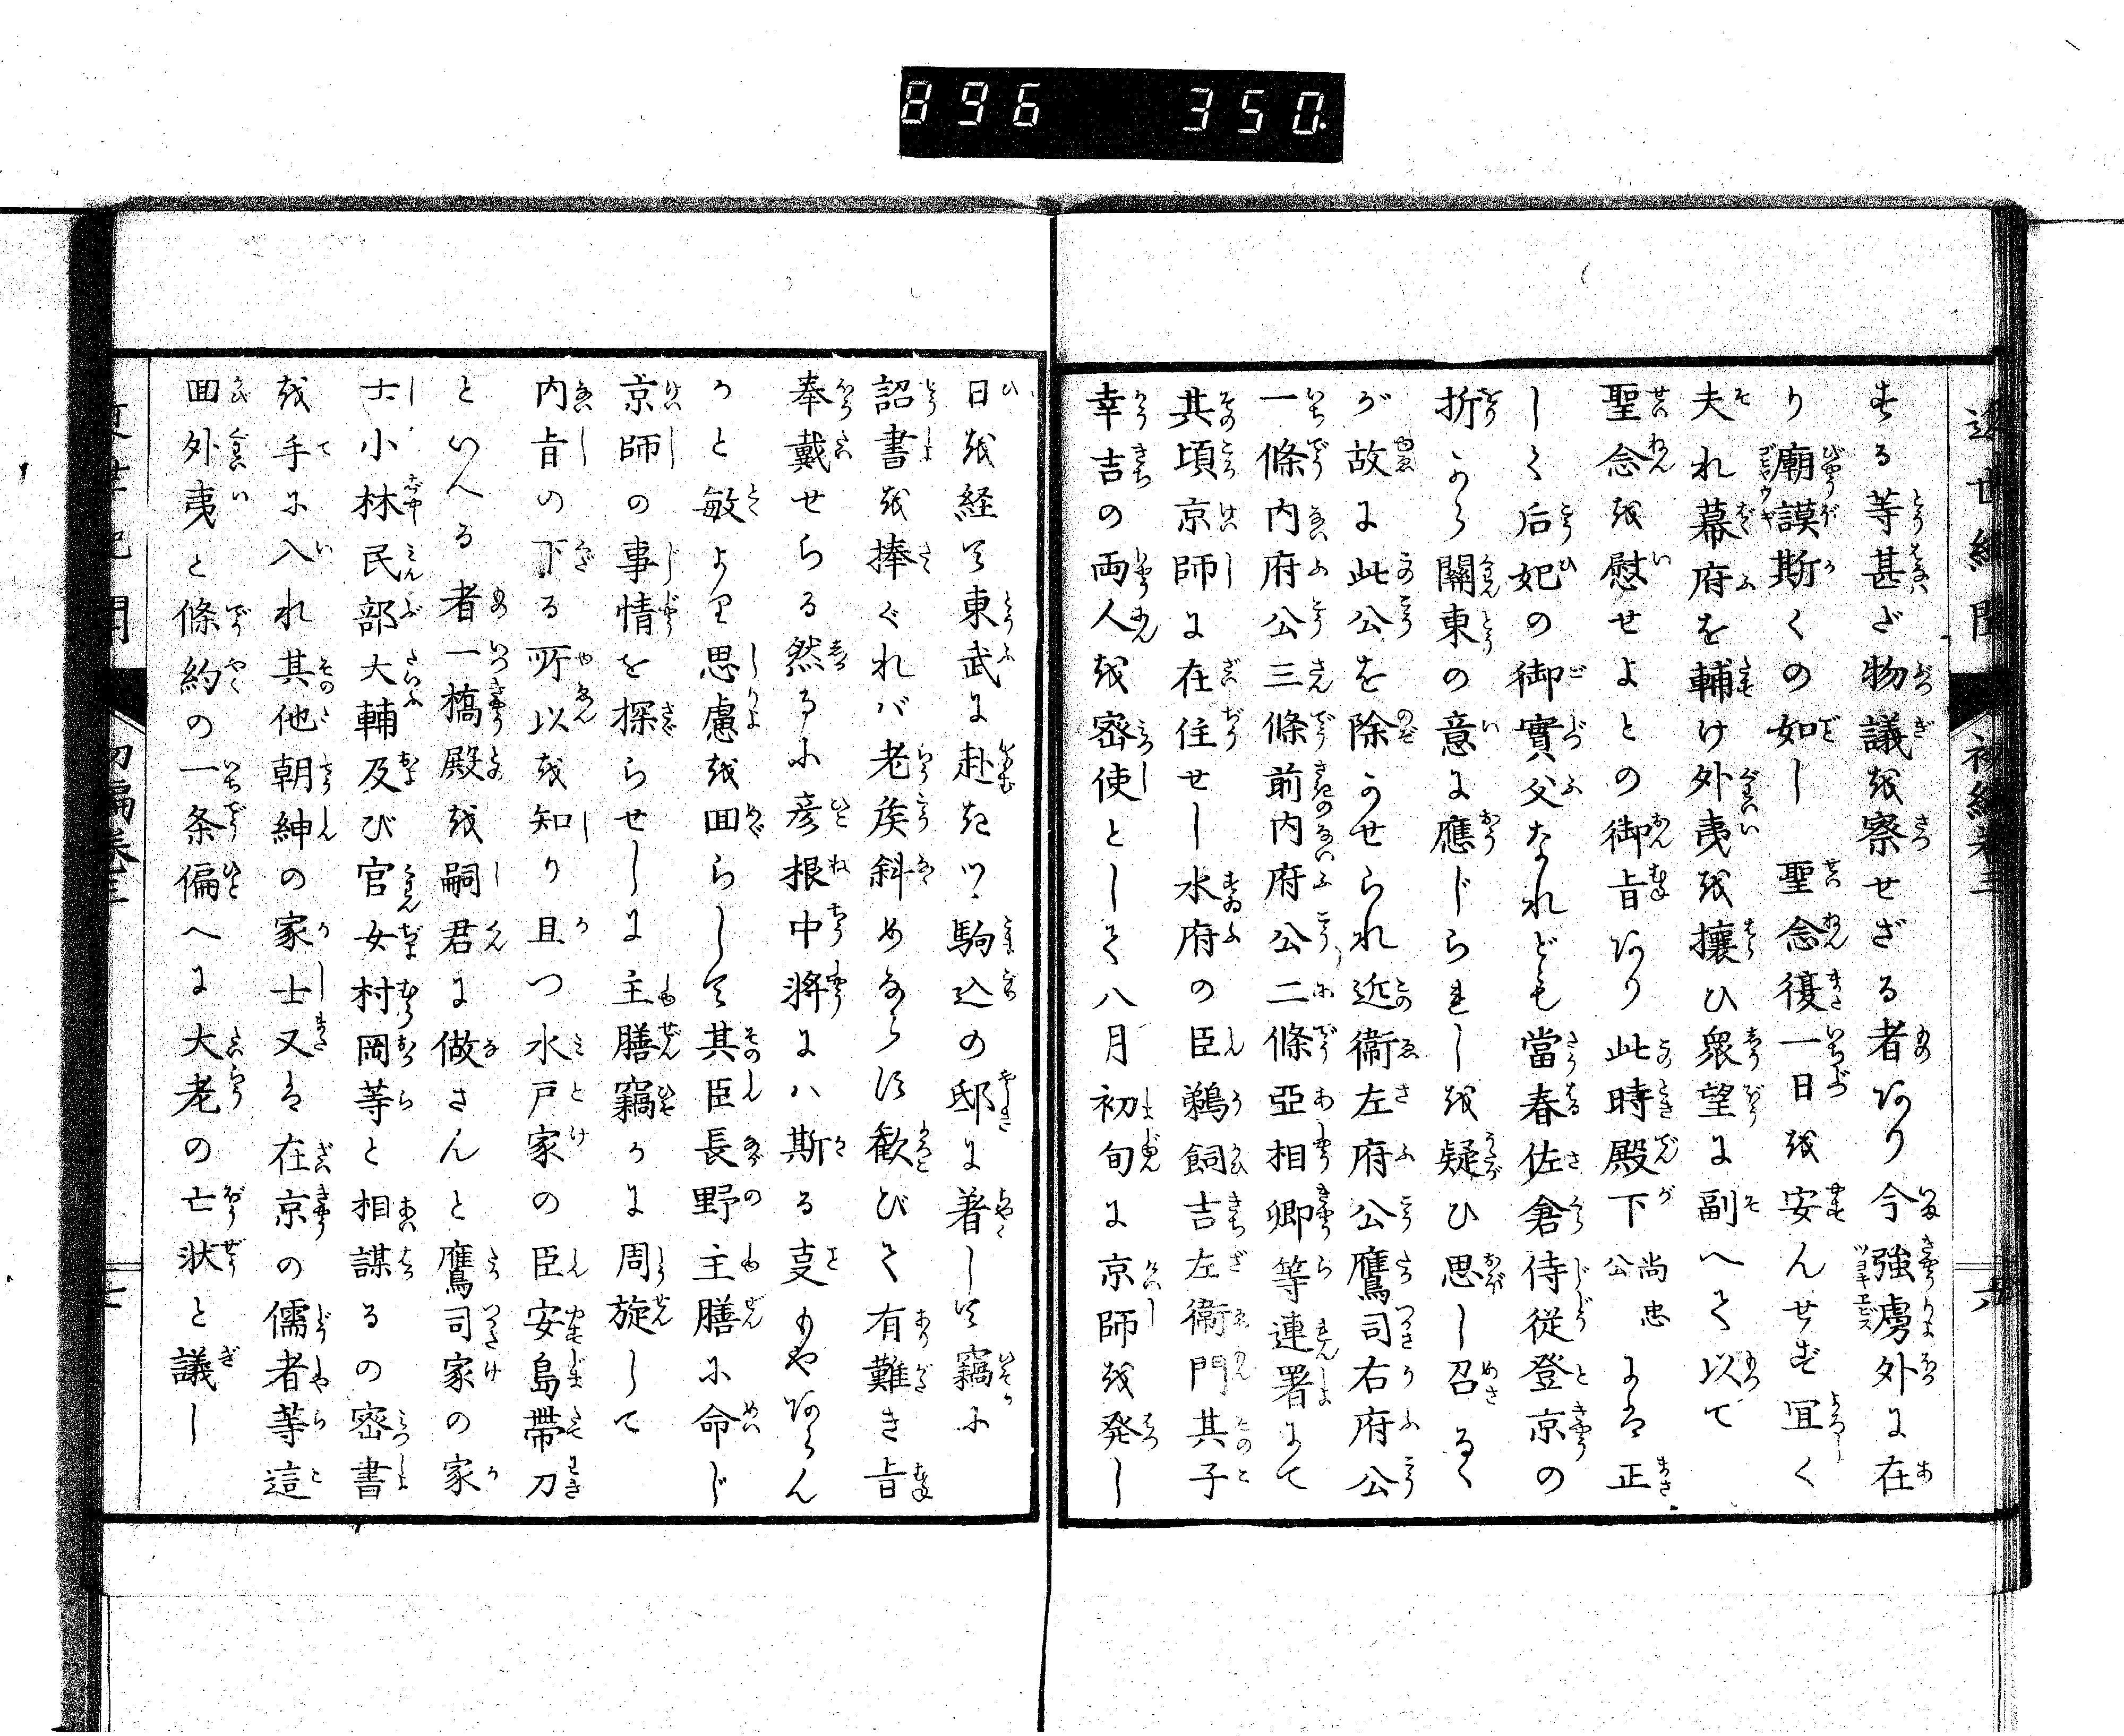 896 350.
近世紀聞 初編卷三 六
する等甚ざ物議を察せざる者あり今強虜外に在
り廟謨斯くの如し 聖念復一日を安んせず冝く
夫れ幕府を輔け外夷を攘ひ衆望に副へて以て
聖念を慰せよとの御旨あり此時殿下尚忠公には正
しく后妃の御實父なれども當春佐倉侍従登京の
折から關東の意に應じられしを疑ひ思し召るゝ
が故に此公を除かせられ近衞左府公鷹司右府公
一條内府公三條前内府公二條亞相卿等連署にて
其頃京師に在住せし水府の臣鵜飼吉左衞門其子
幸吉の両人を密使として八月初旬に京師を発し
日を経て東武に赴きツヽ駒込の邸に着して竊に
詔書を捧ぐれバ老矦斜めならず歓びて有難き旨
奉戴せらる然るに彦根中將にハ斯る叓もやあらん
かと敏より思慮を囬らして其臣長野主膳に命じ
京師の事情を探らせしに主膳竊かに周旋して
内旨の下る所以を知り且つ水戸家の臣安島帶刀
といへる者一橋殿を嗣君に做さんと鷹司家の家
士小林民部大輔及び官女村岡等と相謀るの密書
を手に入れ其他朝紳の家士又は在京の儒者等這
囬外夷と條約の一条偏へに大老の亡状と議し